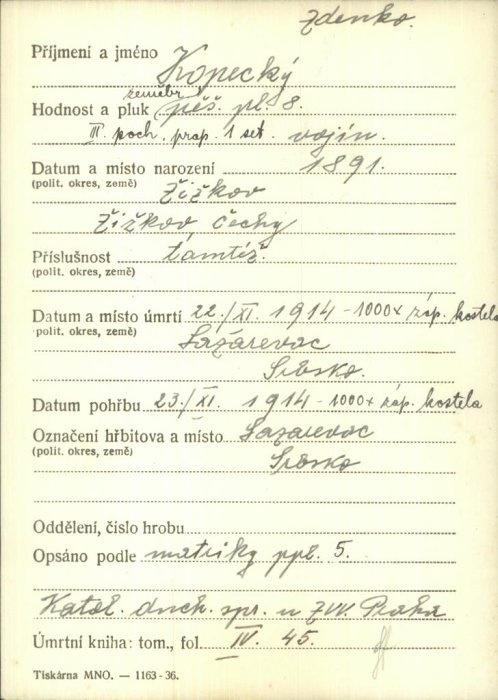 Zdenko.
Příjmení a jméno Kopecký
zeměbr.
Hodnost a pluk pěš. pl. 8.
III. poch. prap. 1 set. vojín.
Datum a místo narození 1891.
(polit. okres, země) Žižkov
Žižkov, Čechy
Příslušnost tamtéž.
(polit. okres, země)
Datum a místo úmrtí 22./XI. 1914 - 1000x záp. kostela
(polit. okres, země) Lazarevac
Srbsko.
Datum pohřbu 23./XI. 1914 - 1000x záp. kostela
Označení hřbitova a místo Lazarevac
(polit. okres, země) Srbsko
Oddělení, číslo hrobu
Opsáno podle matriky ppl. 5.
Katol. duch. spr. u ZVV. Praha
Úmrtní kniha: tom., fol. IV. 45.
Tiskárna MNO. — 1163-36.